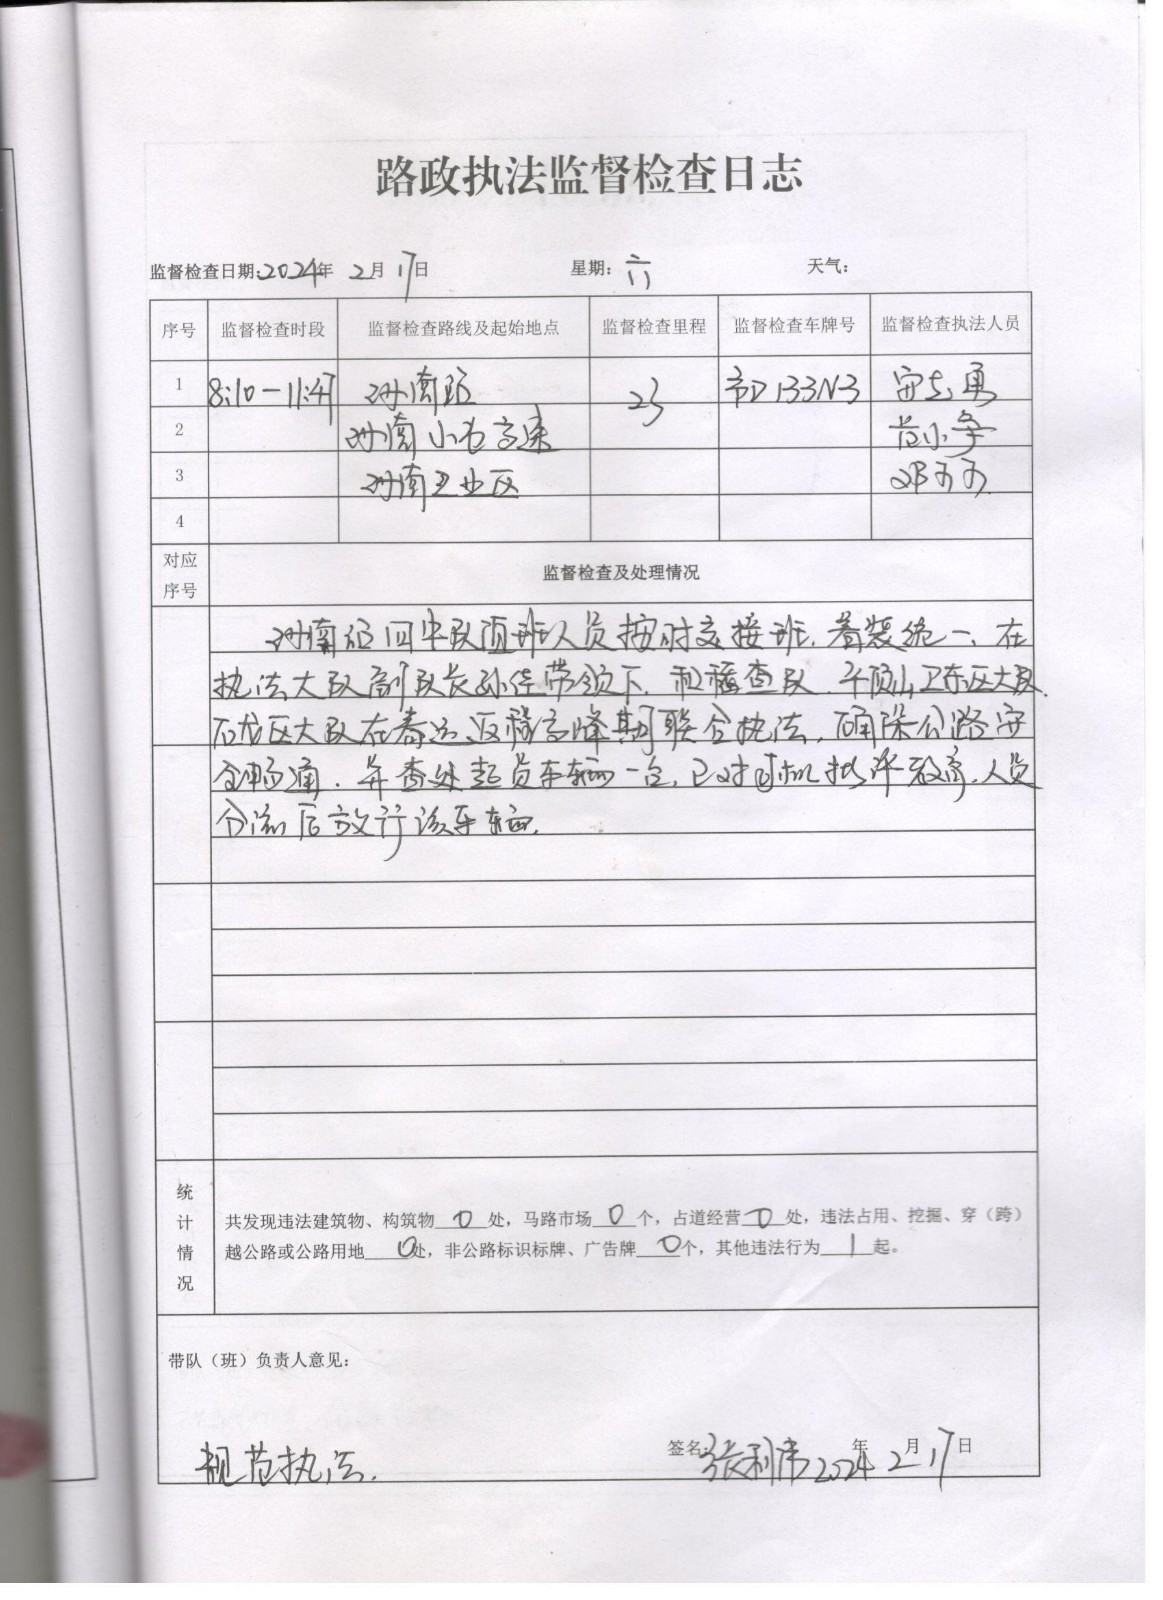 路政执法监督检查日志
监督检查日期:2024年 2月17日 星期:六 天气:
序号 监督检查时段 监督检查路线及起始地点 监督检查里程 监督检查车牌号 监督检查执法人员
1 8:10-11:47 南 23 D133N3 勇
2 南 高速 小
3 南工业区 邓
4
对应序号 监督检查及处理情况
南 四中队值班人员按时交接班,着装统一,在
执法大队副队长孙佳带领下,和稽查队,平顶山卫东区大队
石龙区大队在春运返程高峰期间联合执法,确保公路安
全畅通,并查处超员车辆一台,已对司机批评教育,人员
分流后放行该车辆.
统计情况
共发现违法建筑物、构筑物 0 处,马路市场 0 个,占道经营 0 处,违法占用、挖掘、穿(跨)
越公路或公路用地 0 处,非公路标识标牌、广告牌 0 个,其他违法行为 1 起。
带队(班)负责人意见:
规范执法.
签名:张利 2024年2月17日